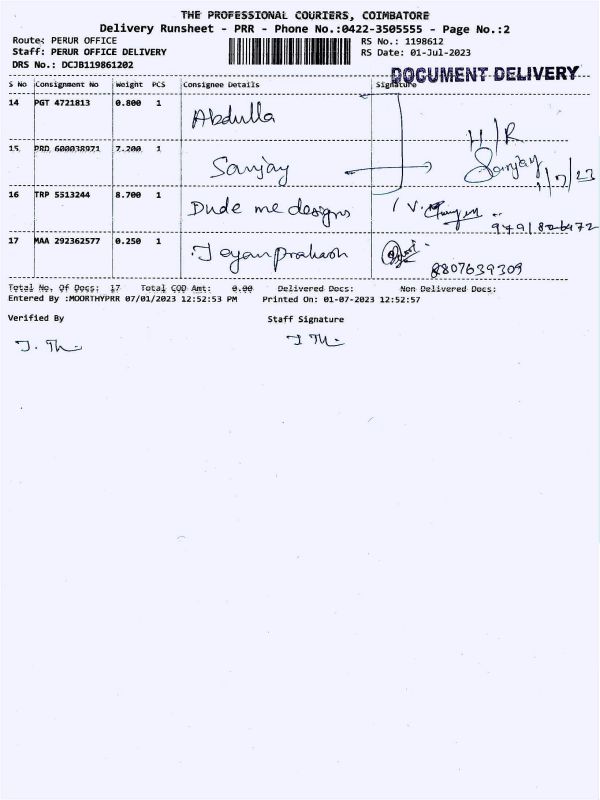 THE PROFESSIONAL COURIERS, COIMBATORE
Delivery Runsheet - PRR - Phone No.:0422-3505555 - Page No.:2
Route: PERUR OFFICE RS No.: 1198612
Staff: PERUR OFFICE DELIVERY RS Date: 01-Jul-2023
DRS No.: DCJB119861202
DOCUMENT DELIVERY
S No Consignment No Weight PCS Consignee Details Signature
14 PGT 4721813 0.800 1 Abdulla
H/R
15 PRD 600038971 7.200 1 Sanjay Sanjay
1/7/23
16 TRP 5513244 8.700 1 Dude me designs
17 MAA 292362577 0.250 1 Jeyanprakash
8807639309
Total No. Of Docs: 17 Total COD Amt: 0.00 Delivered Docs: Non Delivered Docs:
Entered By :MOORTHYPRR 07/01/2023 12:52:53 PM Printed On: 01-07-2023 12:52:57
Verified By Staff Signature